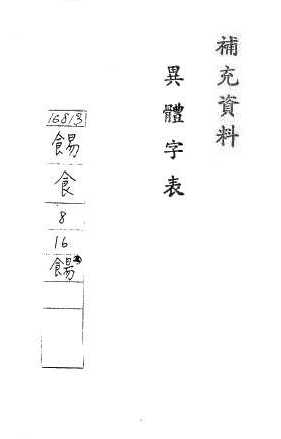 補充資料
異體字表
16813
食
8
16
餳